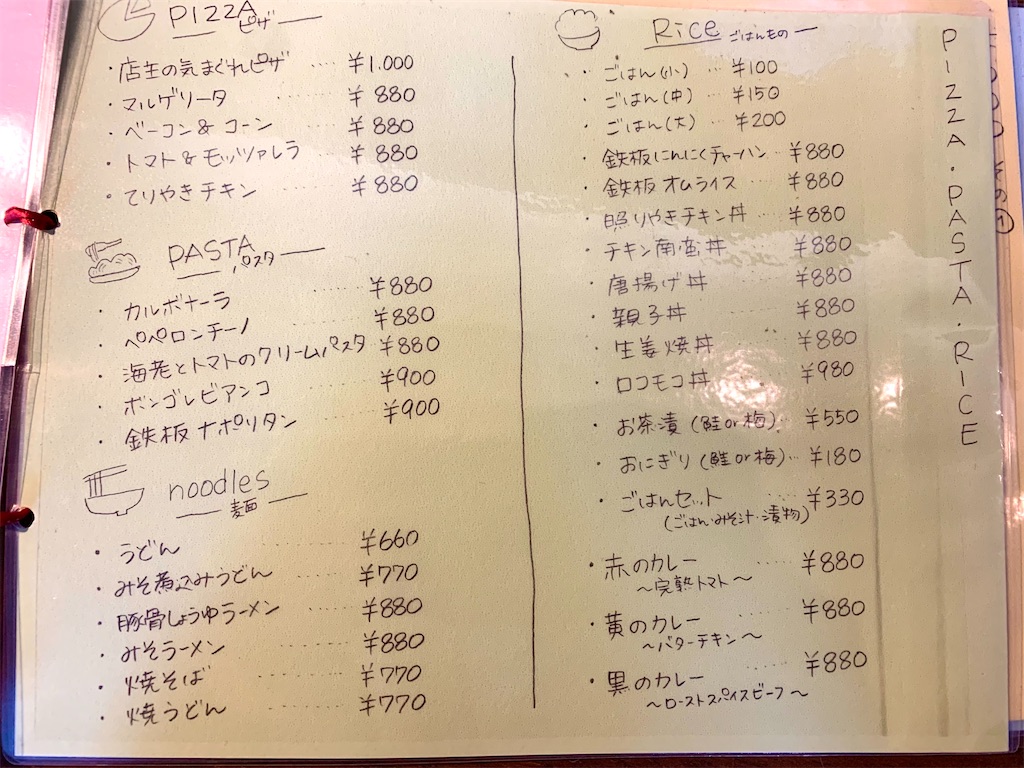 PIZZA
ピザ
・店主の気まぐれピザ ････ ¥1.000
・マルゲリータ ･････ ¥880
・ベーコン & コーン ･････ ¥880
・トマト&モッツァレラ ････ ¥880
・てりやきチキン ････ ¥880
PASTA
パスタ
・カルボナーラ ･････ ¥880
・ペペロンチーノ ･････ ¥880
・海老とトマトのクリームパスタ ¥880
・ボンゴレビアンコ ････ ¥900
・鉄板ナポリタン ････ ¥900
noodles
麺
・うどん ････ ¥660
・みそ煮込みうどん ････ ¥770
・豚骨しょうゆラーメン ････ ¥880
・みそラーメン ････ ¥880
・焼そば ････ ¥770
・焼うどん ････ ¥770
Rice ごはんもの
・ごはん(小) ･･･ ¥100
・ごはん(中) ･･･ ¥150
・ごはん(大) ･･･ ¥200
・鉄板にんにくチャーハン ･･ ¥880
・鉄板オムライス ････ ¥880
・照りやきチキン丼 ････ ¥880
・チキン南蛮丼 ････ ¥880
・唐揚げ丼 ････ ¥880
・親子丼 ････ ¥880
・生姜焼丼 ････ ¥880
・ロコモコ丼 ････ ¥980
・お茶漬(鮭or梅) ･･･ ¥550
・おにぎり(鮭or梅)･･･ ¥180
・ごはんセット ････ ¥330
(ごはん・みそ汁・漬物)
・赤のカレー ････ ¥880
〜完熟トマト〜
・黄のカレー ････ ¥880
〜バターチキン〜
・黒のカレー ････ ¥880
〜ローストスパイスビーフ〜
PIZZA・PASTA・RICE